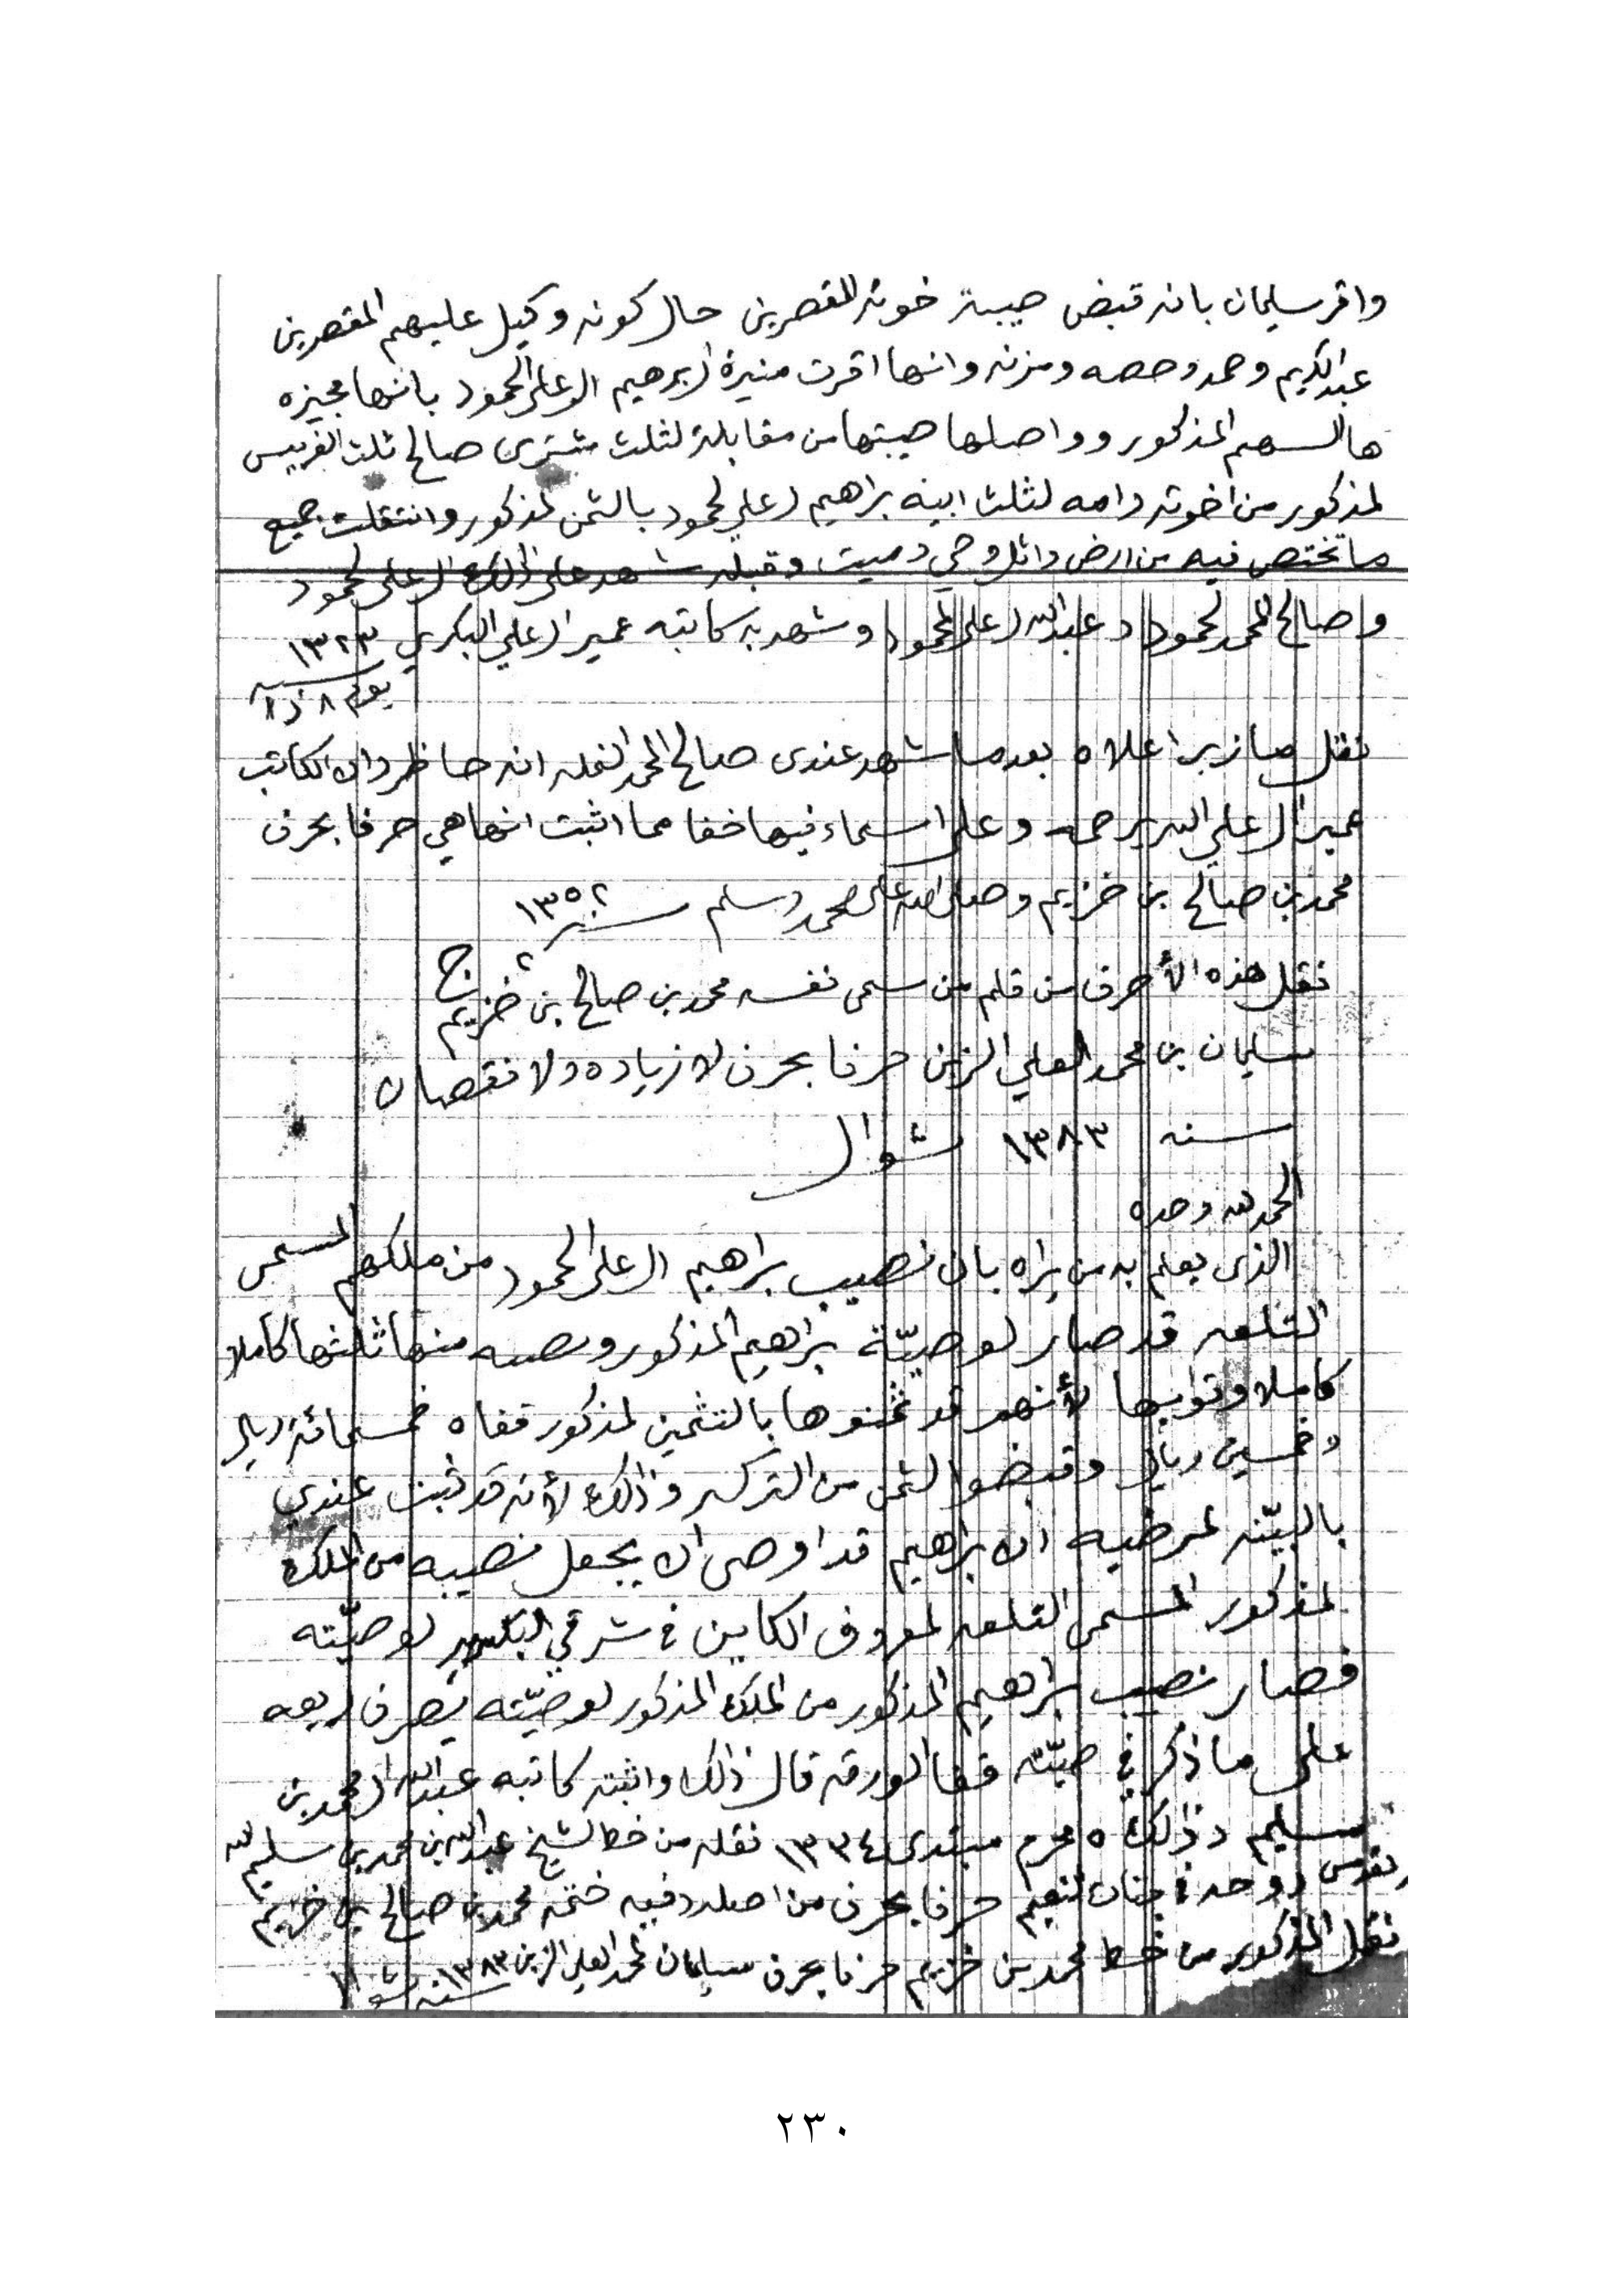 واقر سليمان بانه قبض صيبة خوته المقصرين حال كونه وكيل عليهم المقصرين
عبدالكريم وحمد وحصه ومزنه وانها اقرت منيرة ابرهيم ال علي المحمود بانها مجيزه
هالسهم المذكور وواصلها صيبتها من مقابلة لثلث مشترى صالح ثلث الغريس
لمذكور من اخوته وامه لثلث ابيه براهيم ال علي لمحمود بالثمن لمذكور وانتقلت جميع
ما تختص فيه من ارض واثل وحي وميت وقبله شهد على ذلك ال علي لمحمود
وصالح المحمد لمحمود وعبدالله ال علي المحمود وشهد به كاتبه عمير ال علي البكري ١٣٢٣
يوم ٨ ذ ا سنه
نقل ما زبر اعلاه بعد ما شهد عندى صالح المحمد النمله انه حاظر وان الكاتب
عمير ال علي الله يرحمه وعلى اسماء فيها خفا مما اثبت انها هي حرفا بحرف
محمد بن صالح بن خزيم وصلى الله على محمد وسلم سنه ١٣٥٢
٢ ج
نقل هذه الأحرف من قلم من سمى نفسه محمد بن صالح بن خزيم
سليمان بن محمد العلي الزبن حرفا بحرف لا زياده ولا نقصان
سنه ١٣٨٣ شوال
الحمد لله وحده
الذى يعلم به من يراه بان نصيب براهيم ال علي المحمود من ملكهم المسمى
التلعه قد صار لوصيّة براهيم المذكور ونصيبه منها ثلثها كاملا
كاملا وتوابعها لأنهم قد ثمّنوها بالتثمين لمذكور قفاه خمسمائة ريال
وخمسين ريال وقبضوا لثمن من التركه وذلك لأنه قد ثبت عندي
بالبيّنه لمرضيه ان براهيم قد اوصى ان يجعل نصيبه من الملك
لمذكور المسمى التلعه لمعروف الكاين في شرقي البكيريه لوصيّته
فصار نصيب براهيم المذكور من الملك المذكور لوصيّته يصرف ريعه
على ما ذكر في صيّته قفا الورقه قال ذلك واثبته كاتبه عبدالله ال محمد بن
سليم وذلك ٥ محرم مبتدى ١٣٣٤ نقله من خط الشيخ عبدالله بن محمد بن سليم الله
يقدس روحه في جنات لنعيم حرفا بحرف من اصله وفيه ختمه محمد بن صالح بن خزيم
نقل المذكور من خط محمد بن خزيم حرفا بحرف سليمان لمحمد العلي الزبن ١٣٨٣ سنه شوال
٢٣٠